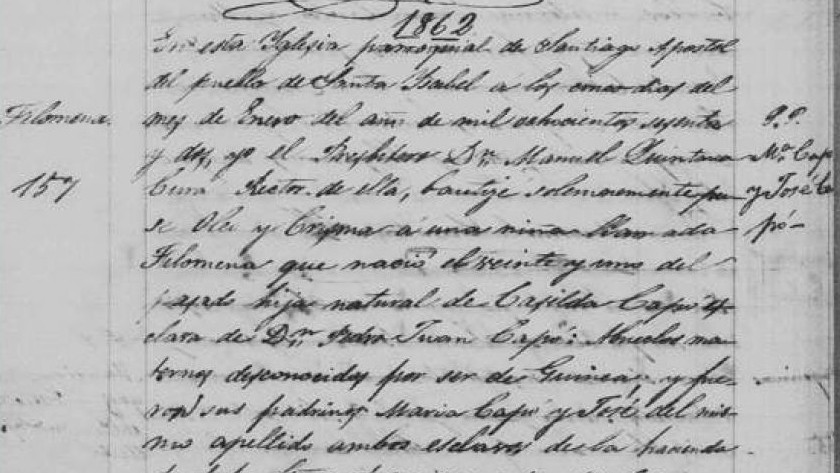 1862
En esta Iglesia parroquial de Santiago Apostol
del pueblo de Santa Isabel á los cinco dias del
Filomena. mes de Enero del año de mil ochocientos sesenta P.P.
y dos, yo el Presbitero Dn. Manuel Quintana Ma. Cap
157 Cura Rector de ella, bautizé solemnemente pu y José
se Oleo y Crisma á una niña llamada pó-
Filomena que nació el veinte y uno del
pasado hija natural de Casilda Capó es
clava de Dn. Pedro Juan Capó: Abuelos ma
ternos desconocidos por ser de Guinea y fue-
ron sus padrinos Maria Capó y José del mis-
mo apellido ambos esclavos de la hacienda